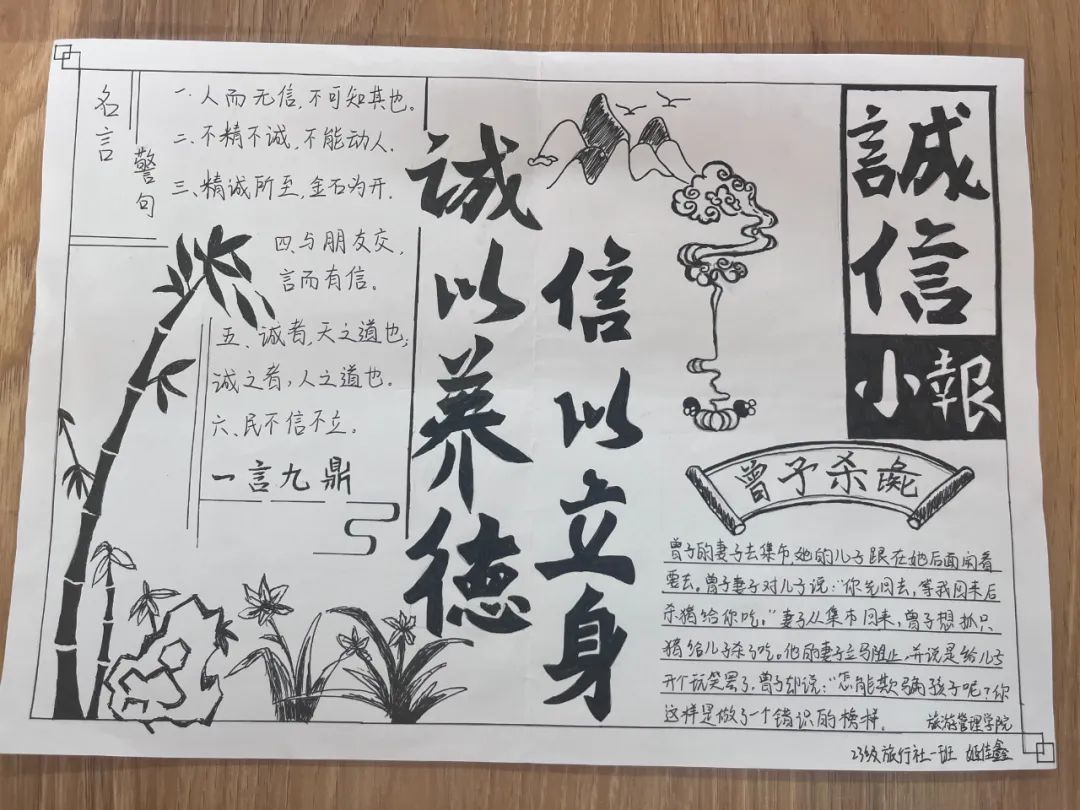 誠信
小報
信以立身
诚以养德
名言
警句
一.人而无信,不可知其也.
二.不精不诚,不能动人.
三、精诚所至,金石为开.
四.与朋友交,
言而有信。
五、诚者,天之道也;
诚之者,人之道也.
六、民不信不立。
一言九鼎
曾子杀彘
曾子的妻子去集市,她的儿子跟在她后面闹着
要去。曾子妻子对儿子说:"你先回去,等我回来后
杀猪给你吃。"妻子从集市回来,曾子想抓只
猪给儿子杀了吃。他的妻子立马阻止,并说是给儿子
开个玩笑罢了,曾子却说:"怎能欺骗孩子呢?你
这样是做了一个错误的榜样。
旅游管理学院
23级旅行社一班 姬佳鑫